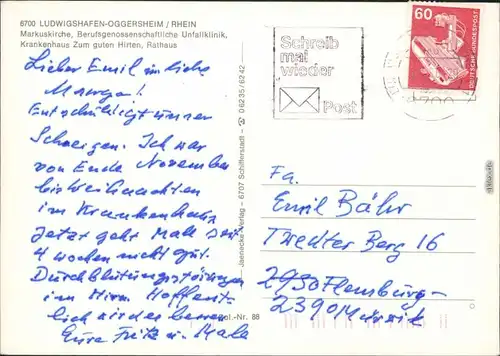 6700 LUDWIGSHAFEN-OGGERSHEIM / RHEIN
Markuskirche, Berufsgenossenschaftliche Unfallklinik,
Krankenhaus Zum guten Hirten, Rathaus
Lieber Emil und liebe
Entschuldigt unser
Schweigen. Ich war
von Ende November
bis Weihnachten
im Krankenhaus
Jetzt geht Male seit
4 Wochen nicht gut.
Durchblutungsstörungen
im Hirn Hoffent-
lich wird es besser
Eure Fritz u. Male
Jaenecke-Verlag – 6707 Schifferstadt – 06235/6242
Best.-Nr. 88
Schreib
mal
wieder
Post
60
DEUTSCHE BUNDESPOST
Fa.
Emil Bähr
Twedter Berg 16
2390 Flensburg-
2390 Mürwik